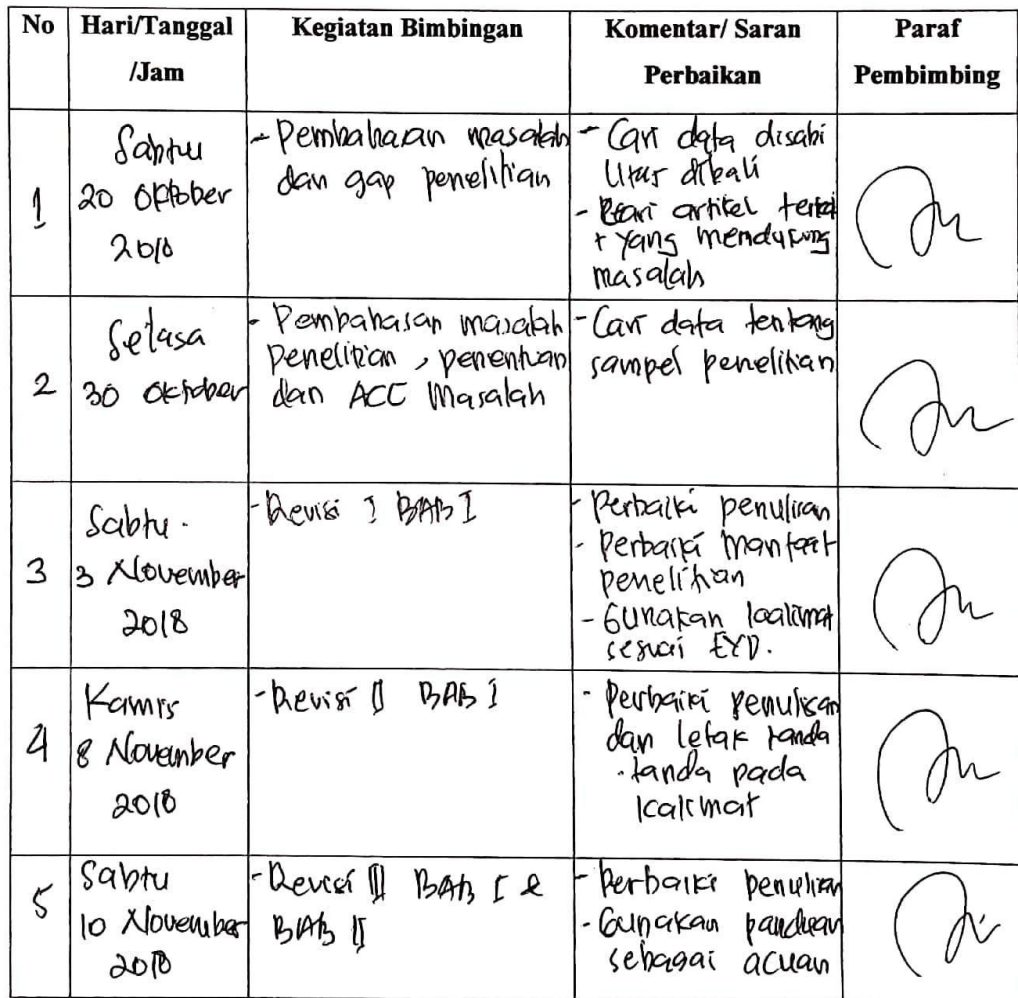 No Hari/Tanggal /Jam Kegiatan Bimbingan Komentar/ Saran Perbaikan Paraf Pembimbing
1
Sabtu
20 Oktober
2018
- Pembahasan masalah
dan gap penelitian
- Cari data disabi
litas dibali
- Cari artikel terkai
t yang mendukung
masalah
2
Selasa
30 Oktober
- Pembahasan masalah
Penelitian, penentuan
dan ACC Masalah
- Cari data tentang
sampel penelitian
3
Sabtu.
3 November
2018
- Revisi I BAB I
- Perbaiki penulisan
- Perbaiki manfaat
penelitian
- Gunakan kalimat
sesuai EYD.
4
Kamis
8 November
2018
- Revisi II BAB I
- Perbaiki penulisan
dan letak tanda
-tanda pada
kalimat
5
Sabtu
10 November
2018
- Revisi III BAB I &
BAB II
- Perbaiki penulisan
- Gunakan panduan
sebagai acuan